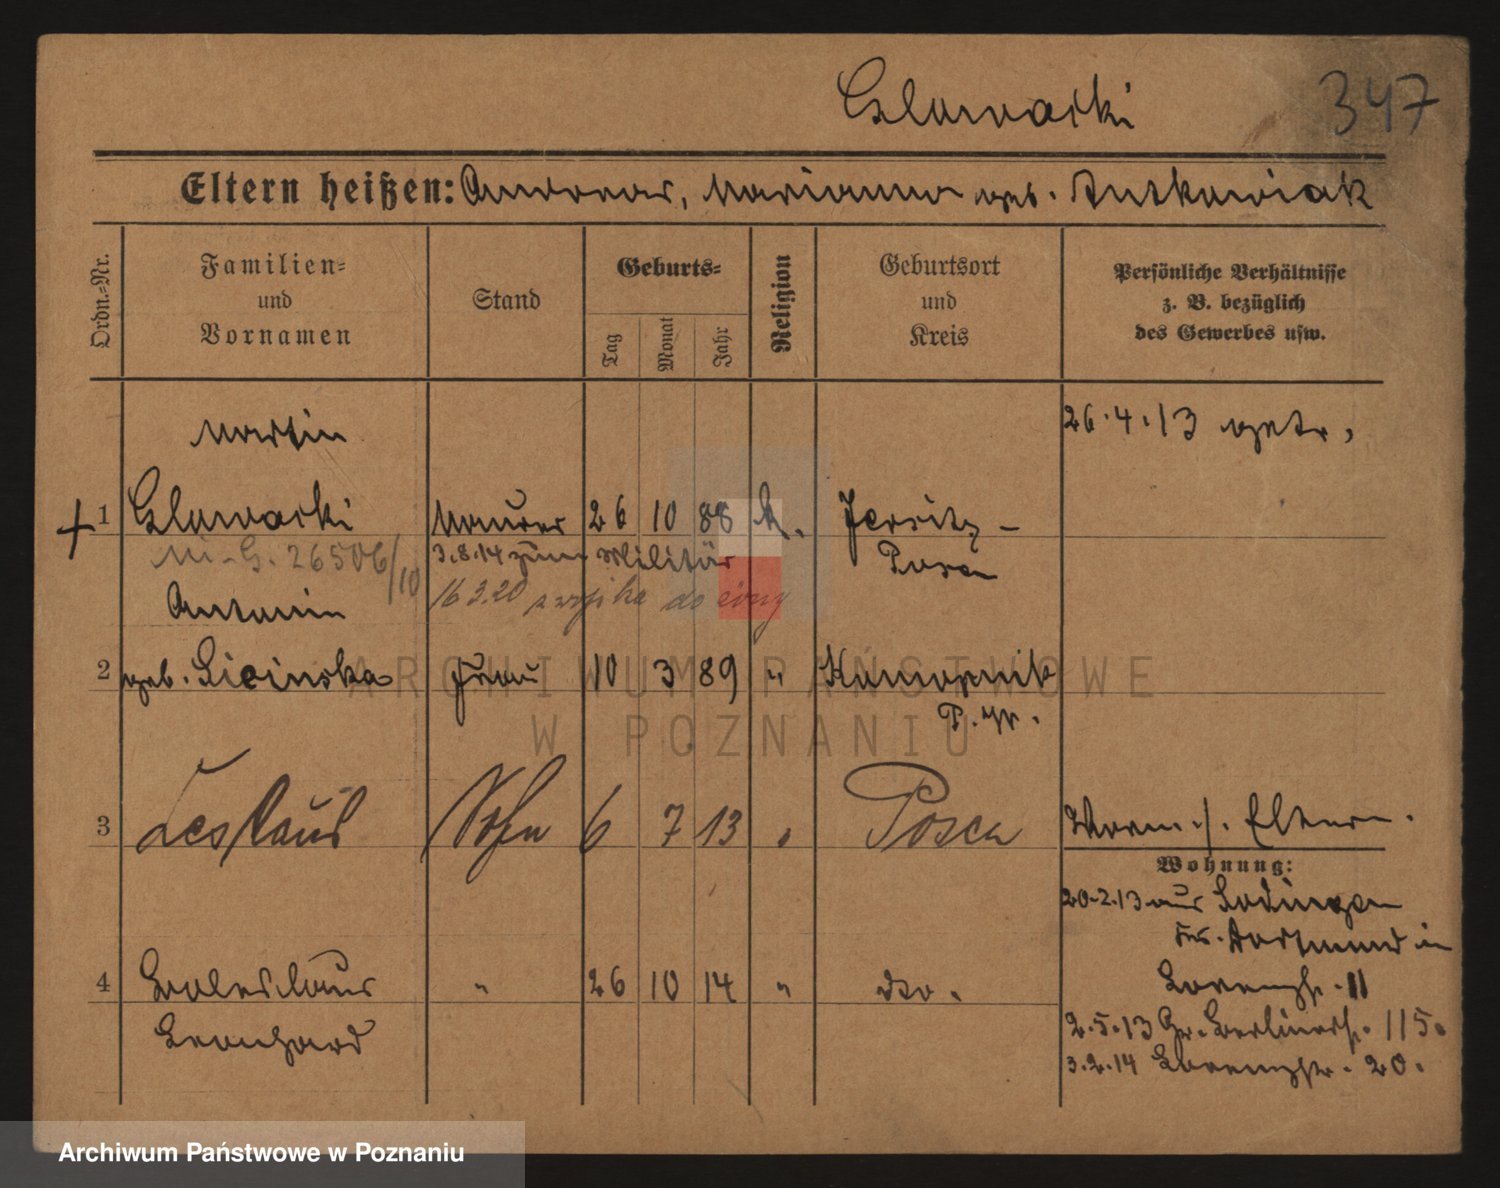 Glowacki
347
Eltern heißen: Andreas, Marianna geb. Antkowiak
Ordn.=Nr.
Familien=
und
Vornamen
Stand
Geburts=
Tag
Monat
Jahr
Religion
Geburtsort
und
Kreis
Persönliche Verhältnisse
z. B. bezüglich
des Gewerbes usw.
Martin
26.4.13 getr.
1 Glowacki Maurer 26 10 88 k. Jersitz-
Posen
3.8.14 zum Militär
Mi-G. 26506/10
16 3.20 z wojska do cywi
Antonin
2 geb. Licinska Frau 10 3 89 " Kamopnik
P. W.
3 Leslaus Sohn 6 7 13 " Posen
Vorm. s. Eltern.
Wohnung:
20.2.13 aus Lodingen
Krs. Dortmund in
Lorenzstr. 11
4 Boleslaus " 26 10 14 " dto.
Leonhard
2.5.13 Gr. Berlinerstr. 115.
3.2.14 Lorenzstr. 20.
ARCHIWUM PAŃSTWOWE
W POZNANIU
Archiwum Państwowe w Poznaniu